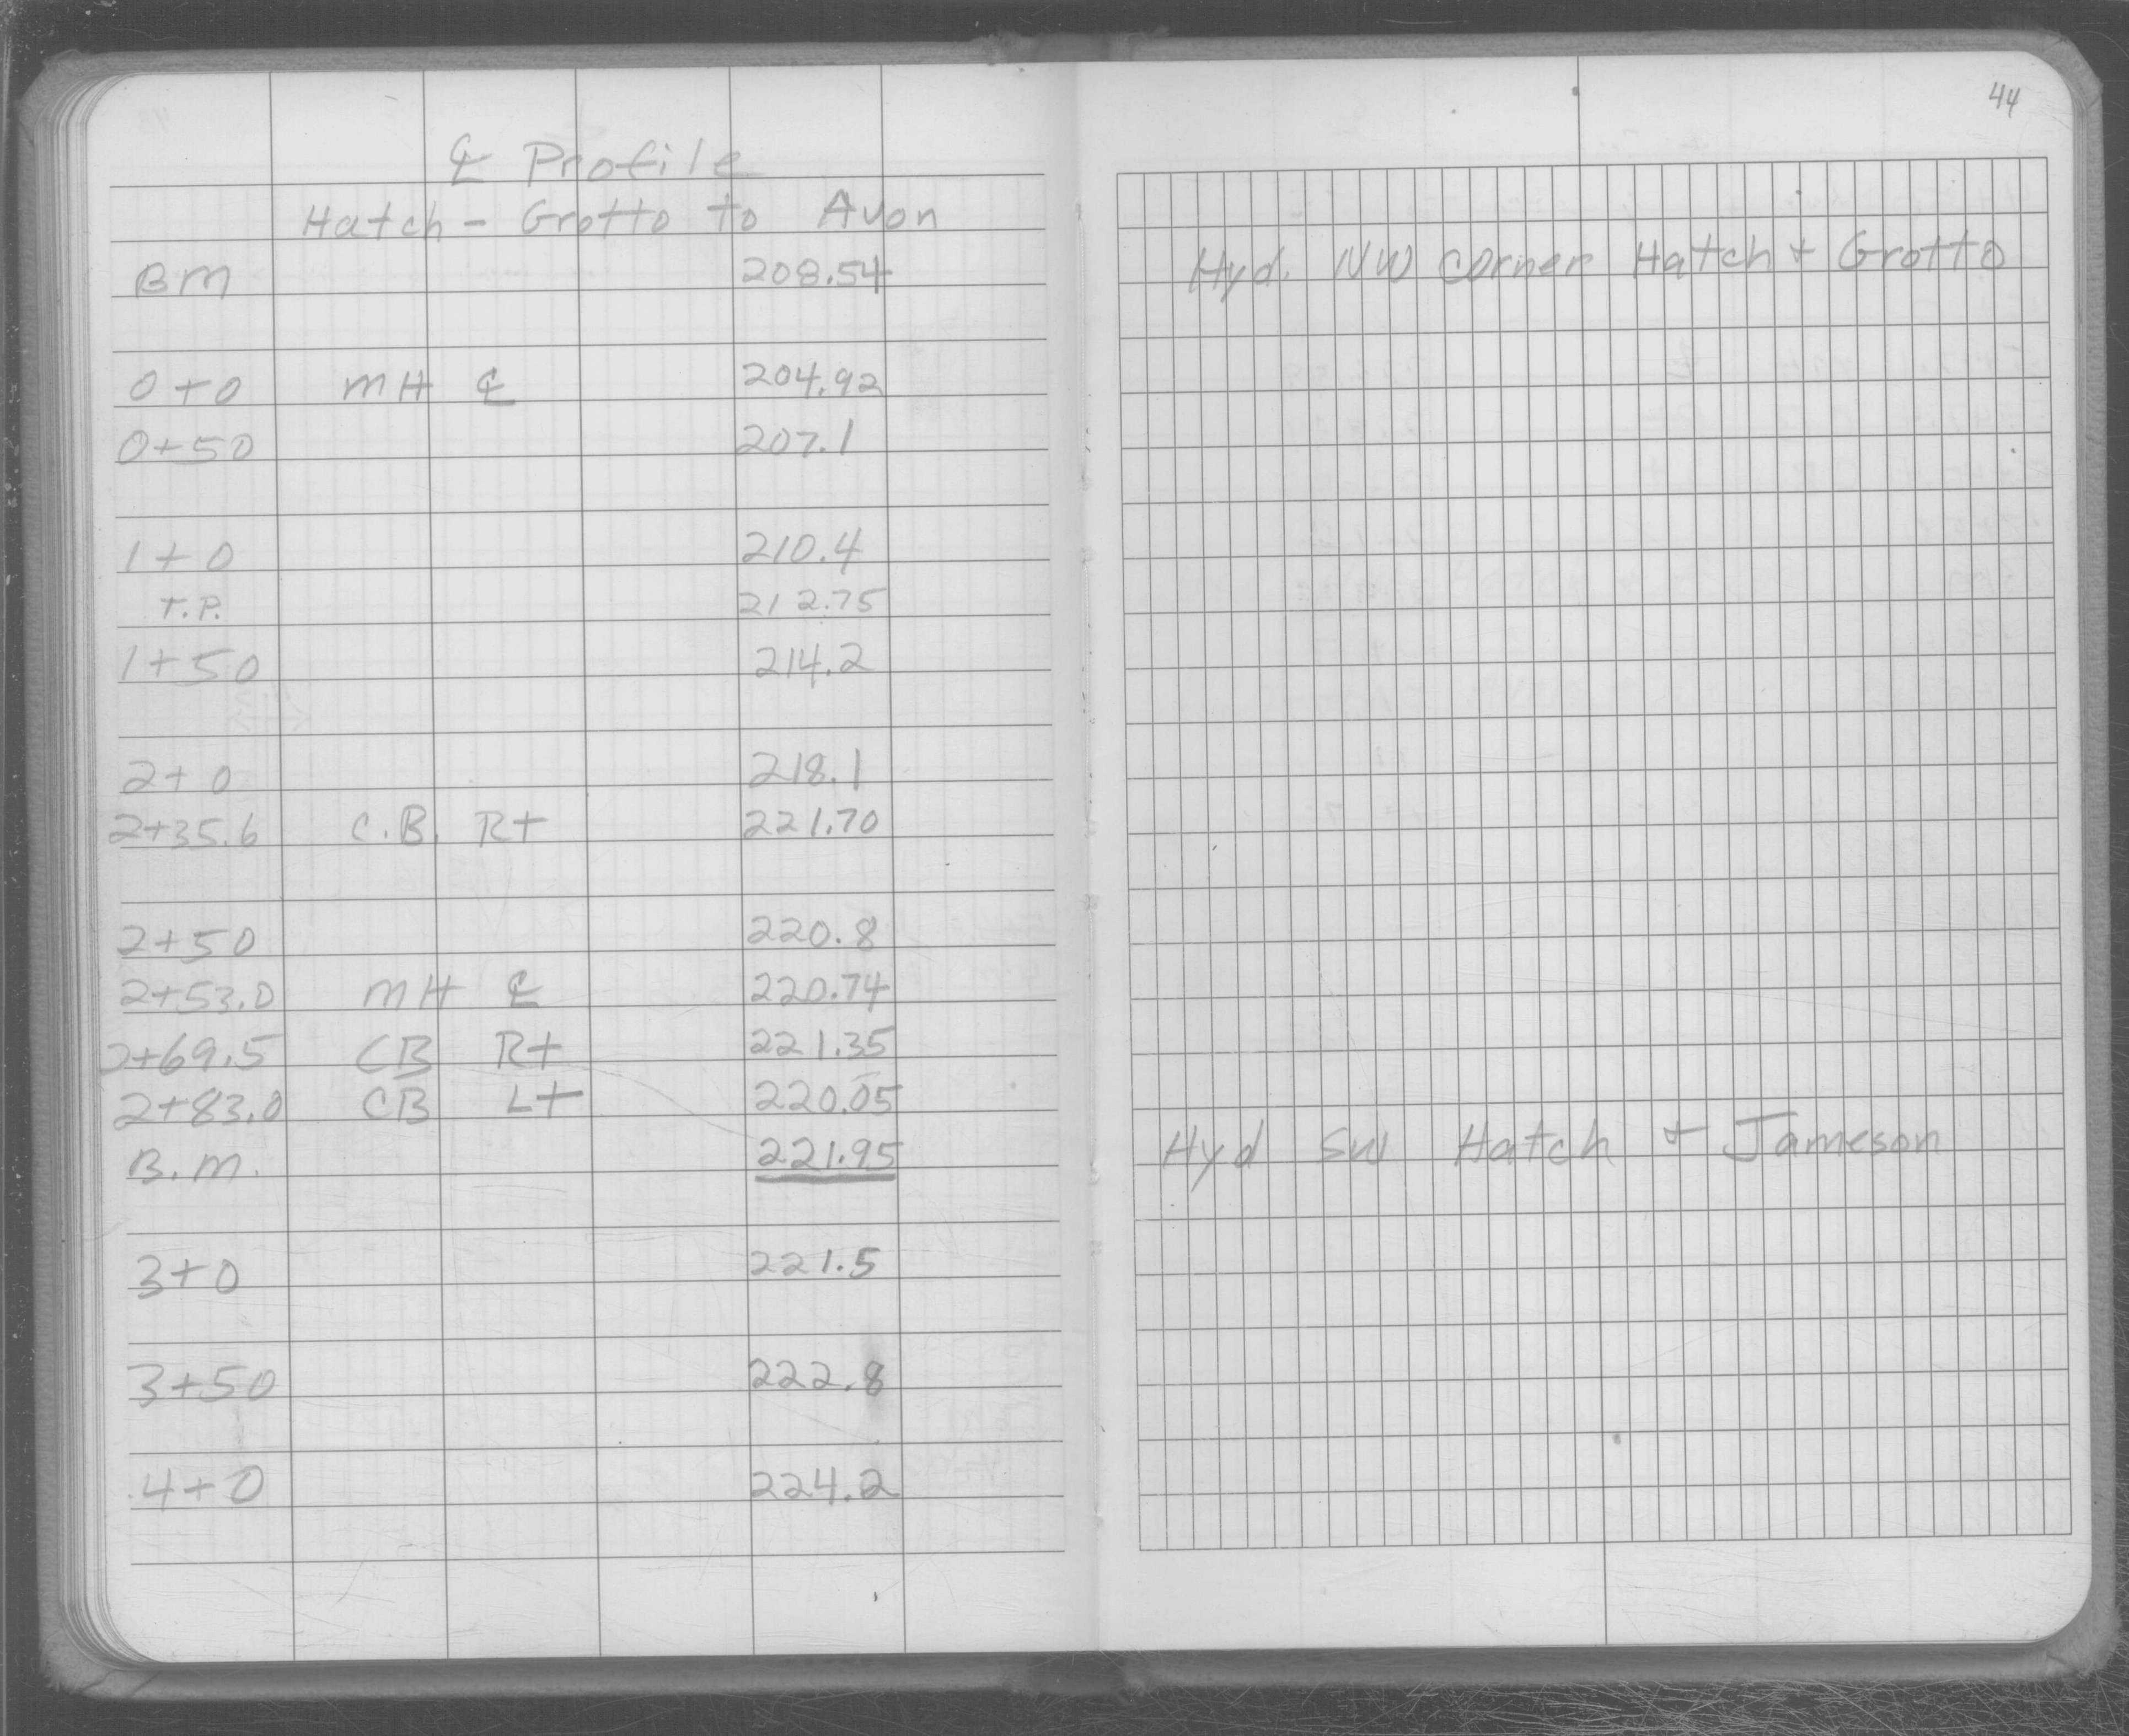 44
℄ Profile
Hatch - Grotto to Avon
BM 208.54 Hyd. NW corner Hatch + Grotto
0+0 MH ℄ 204.92
0+50 207.1
1+0 210.4
T.P. 212.75
1+50 214.2
2+0 218.1
2+35.6 C.B. Rt 221.70
2+50 220.8
2+53.0 MH ℄ 220.74
2+69.5 CB Rt 221.35
2+83.0 CB Lt 220.05
B.M. 221.95 Hyd SW Hatch + Jameson
3+0 221.5
3+50 222.8
4+0 224.2